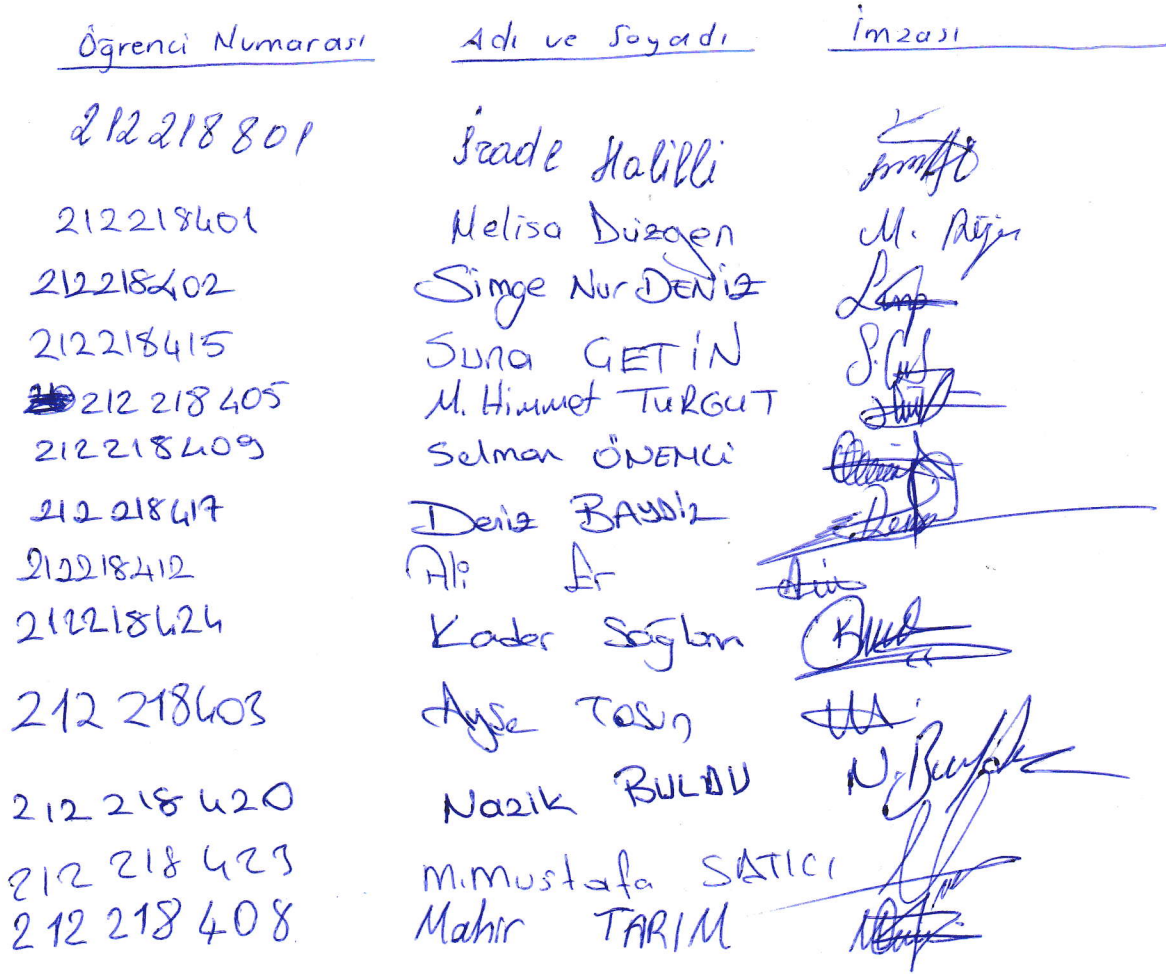 Öğrenci Numarası Adı ve Soyadı İmzası
212218801 İrade Halilli
212218401 Melisa Düzgen M.
212218402 Simge Nur DENİZ
212218415 Suna ÇETİN
212 218 405 M. Himmet TURGUT
212218409 Selman ÖNEMCİ
212 218417 Deniz BAYDİZ
212218412 Ali Er
212218424 Kader Sağlam
212 218403 Ayşe Tosun
212 218 420 Nazik BULDU
212 218 423 M.Mustafa SATICI
212 218 408 Mahir TARIM